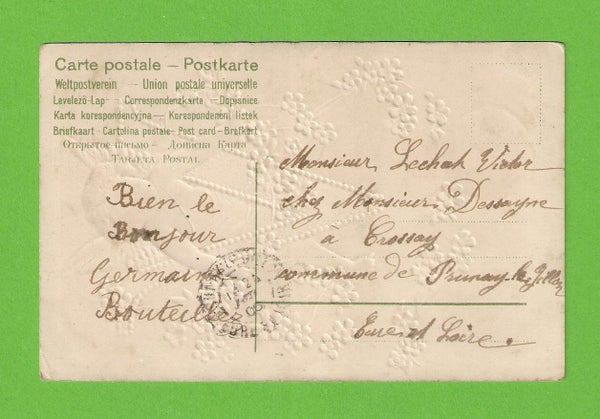 Carte postale — Postkarte
Weltpostverein — Union postale universelle
Levelező-Lap — Correspondenzkarte — Dopisnice
Karta korespondencyjna — Korespondenční lístek
Briefkaart — Cartolina postale — Post card — Brefkort
Открытое письмо — Дописна Карта
Tarjeta Postal
Bien le
Bonjour
Germaine
Bouteillez
Monsieur Lechat Victor
chez Monsieur Dessayne
à Crossay
commune de Prunay-le-Gillon
Eure et Loire.
EURE ET LOIR